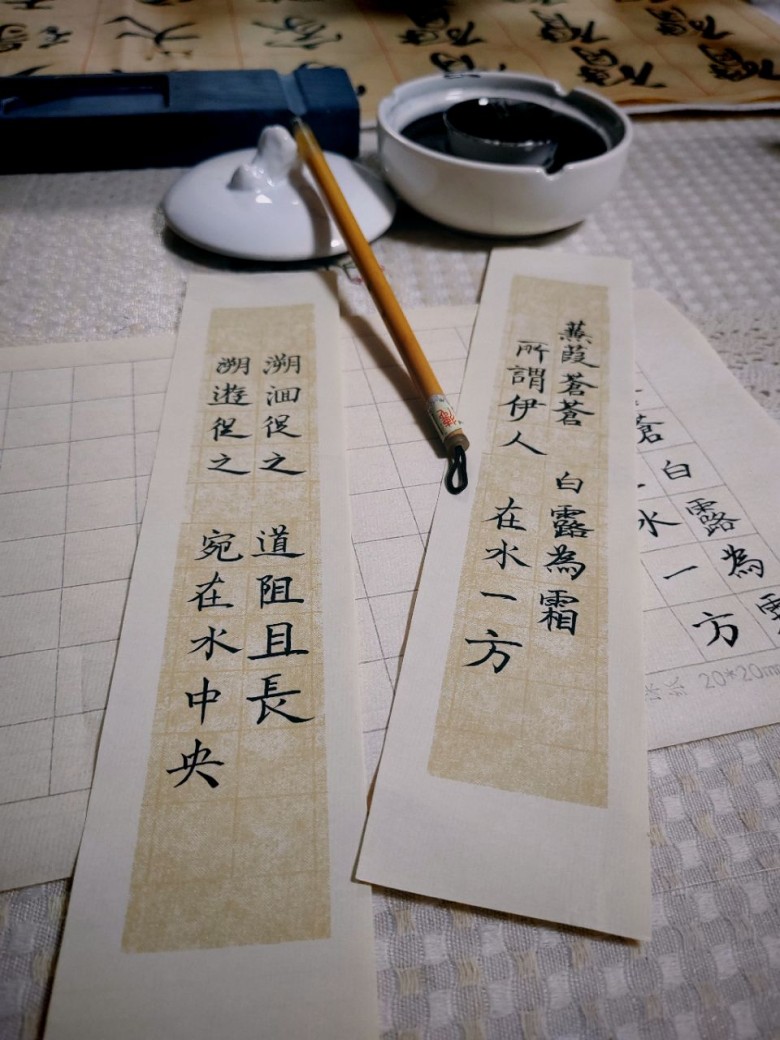 蒹葭蒼蒼 白露為霜
所謂伊人 在水一方
溯洄從之 道阻且長
溯遊從之 宛在水中央
蒼 白露為
水一方
20*20m